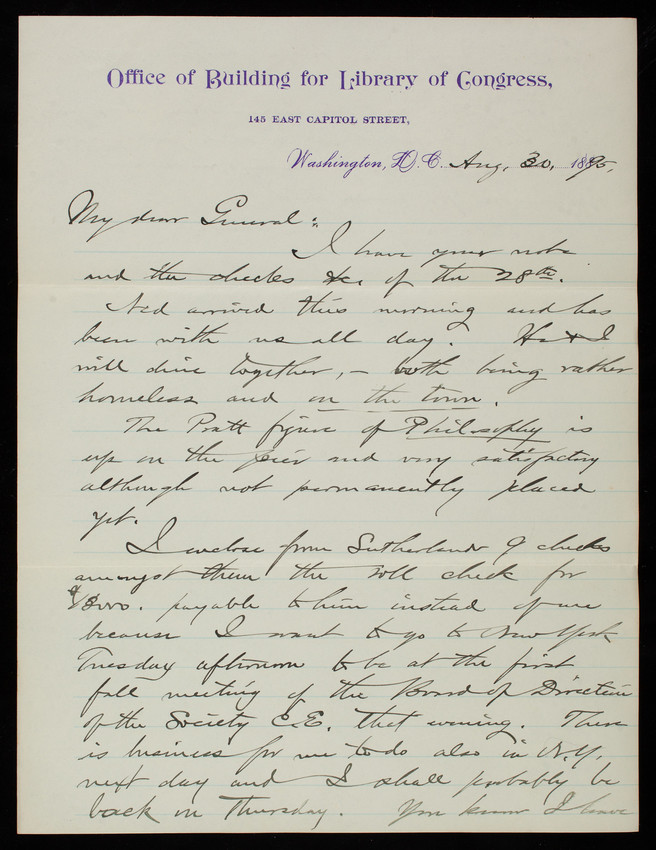 Office of Building for Library of Congress,
145 EAST CAPITOL STREET,
Washington, D. C. Aug. 30. 1895.
My dear General:
I have your note
and the checks &c. of the 28th.
Ned arrived this morning and has
been with us all day. He & I
will dine together, – both being rather
homeless and on the town.
The Pratt figure of Philosophy is
up on the pier and very satisfactory
although not permanently placed
yet.
I enclose from Sutherland 9 checks
amongst them the roll check for
payable to him instead of me
because I want to go to New York
Tuesday afternoon to be at the first
fall meeting of the Board of Direction
of the Society C.E. that evening. There
is business for me to do also in N.Y.
next day and I shall probably be
back on Thursday. You know I have